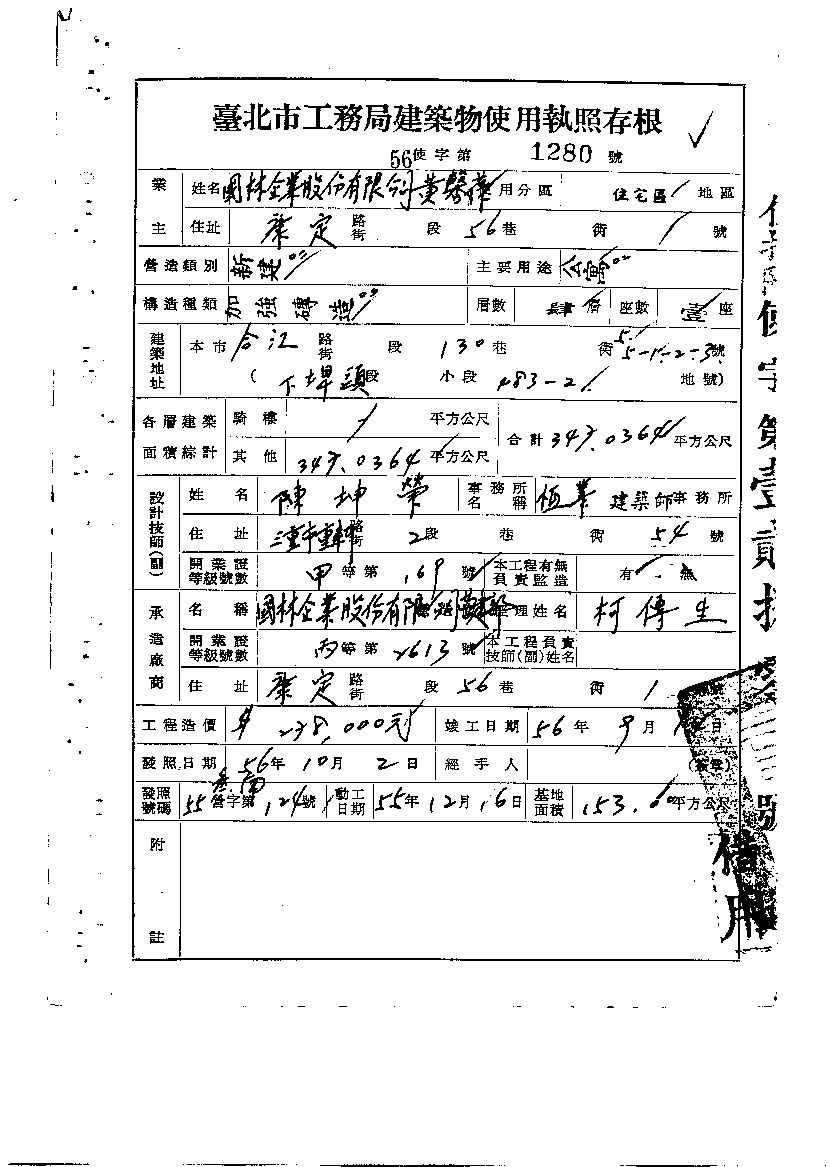 臺北市工務局建築物使用執照存根
56使字第 1280 號
業主 姓名 國林企業股份有限公司黃馨 用分區 住宅區 地區
住址 康定 路街 段 56巷 衖 1 號
營造類別 新建 主要用途 公寓
構造種類 加強磚造 層數 肆層 座數 壹座
建築地址 本市 合江 路街 段 130巷 衖 5-1.-2-3號
( 下埤頭段 小段 483-2 地號)
各層建築面積綜計 騎樓 / 平方公尺 合計 347.0364 平方公尺
其他 347.0364 平方公尺
設計技師(副) 姓名 陳坤榮 事務所名稱 恆業 建築師事務所
住址 三重市重 路街 2段 巷 衖 54 號
開業證等級號數 甲等第 169 號 本工程有無負責監造 有 . 無
承造廠商 名稱 國林企業股份有限公司 經理姓名 柯傳生
開業證等級號數 丙等第 2613 號 本工程負責技師(副)姓名
住址 康定 路街 段 56巷 衖 1 號
工程造價 $ 278,000元 竣工日期 56年 9月 日
發照日期 56年 10月 2日 經手人 (蓋章)
發照號碼 55營字第 124號 動工日期 55年12月16日 基地面積 153.60平方公尺
附註
使字第壹貳捌 號
借用